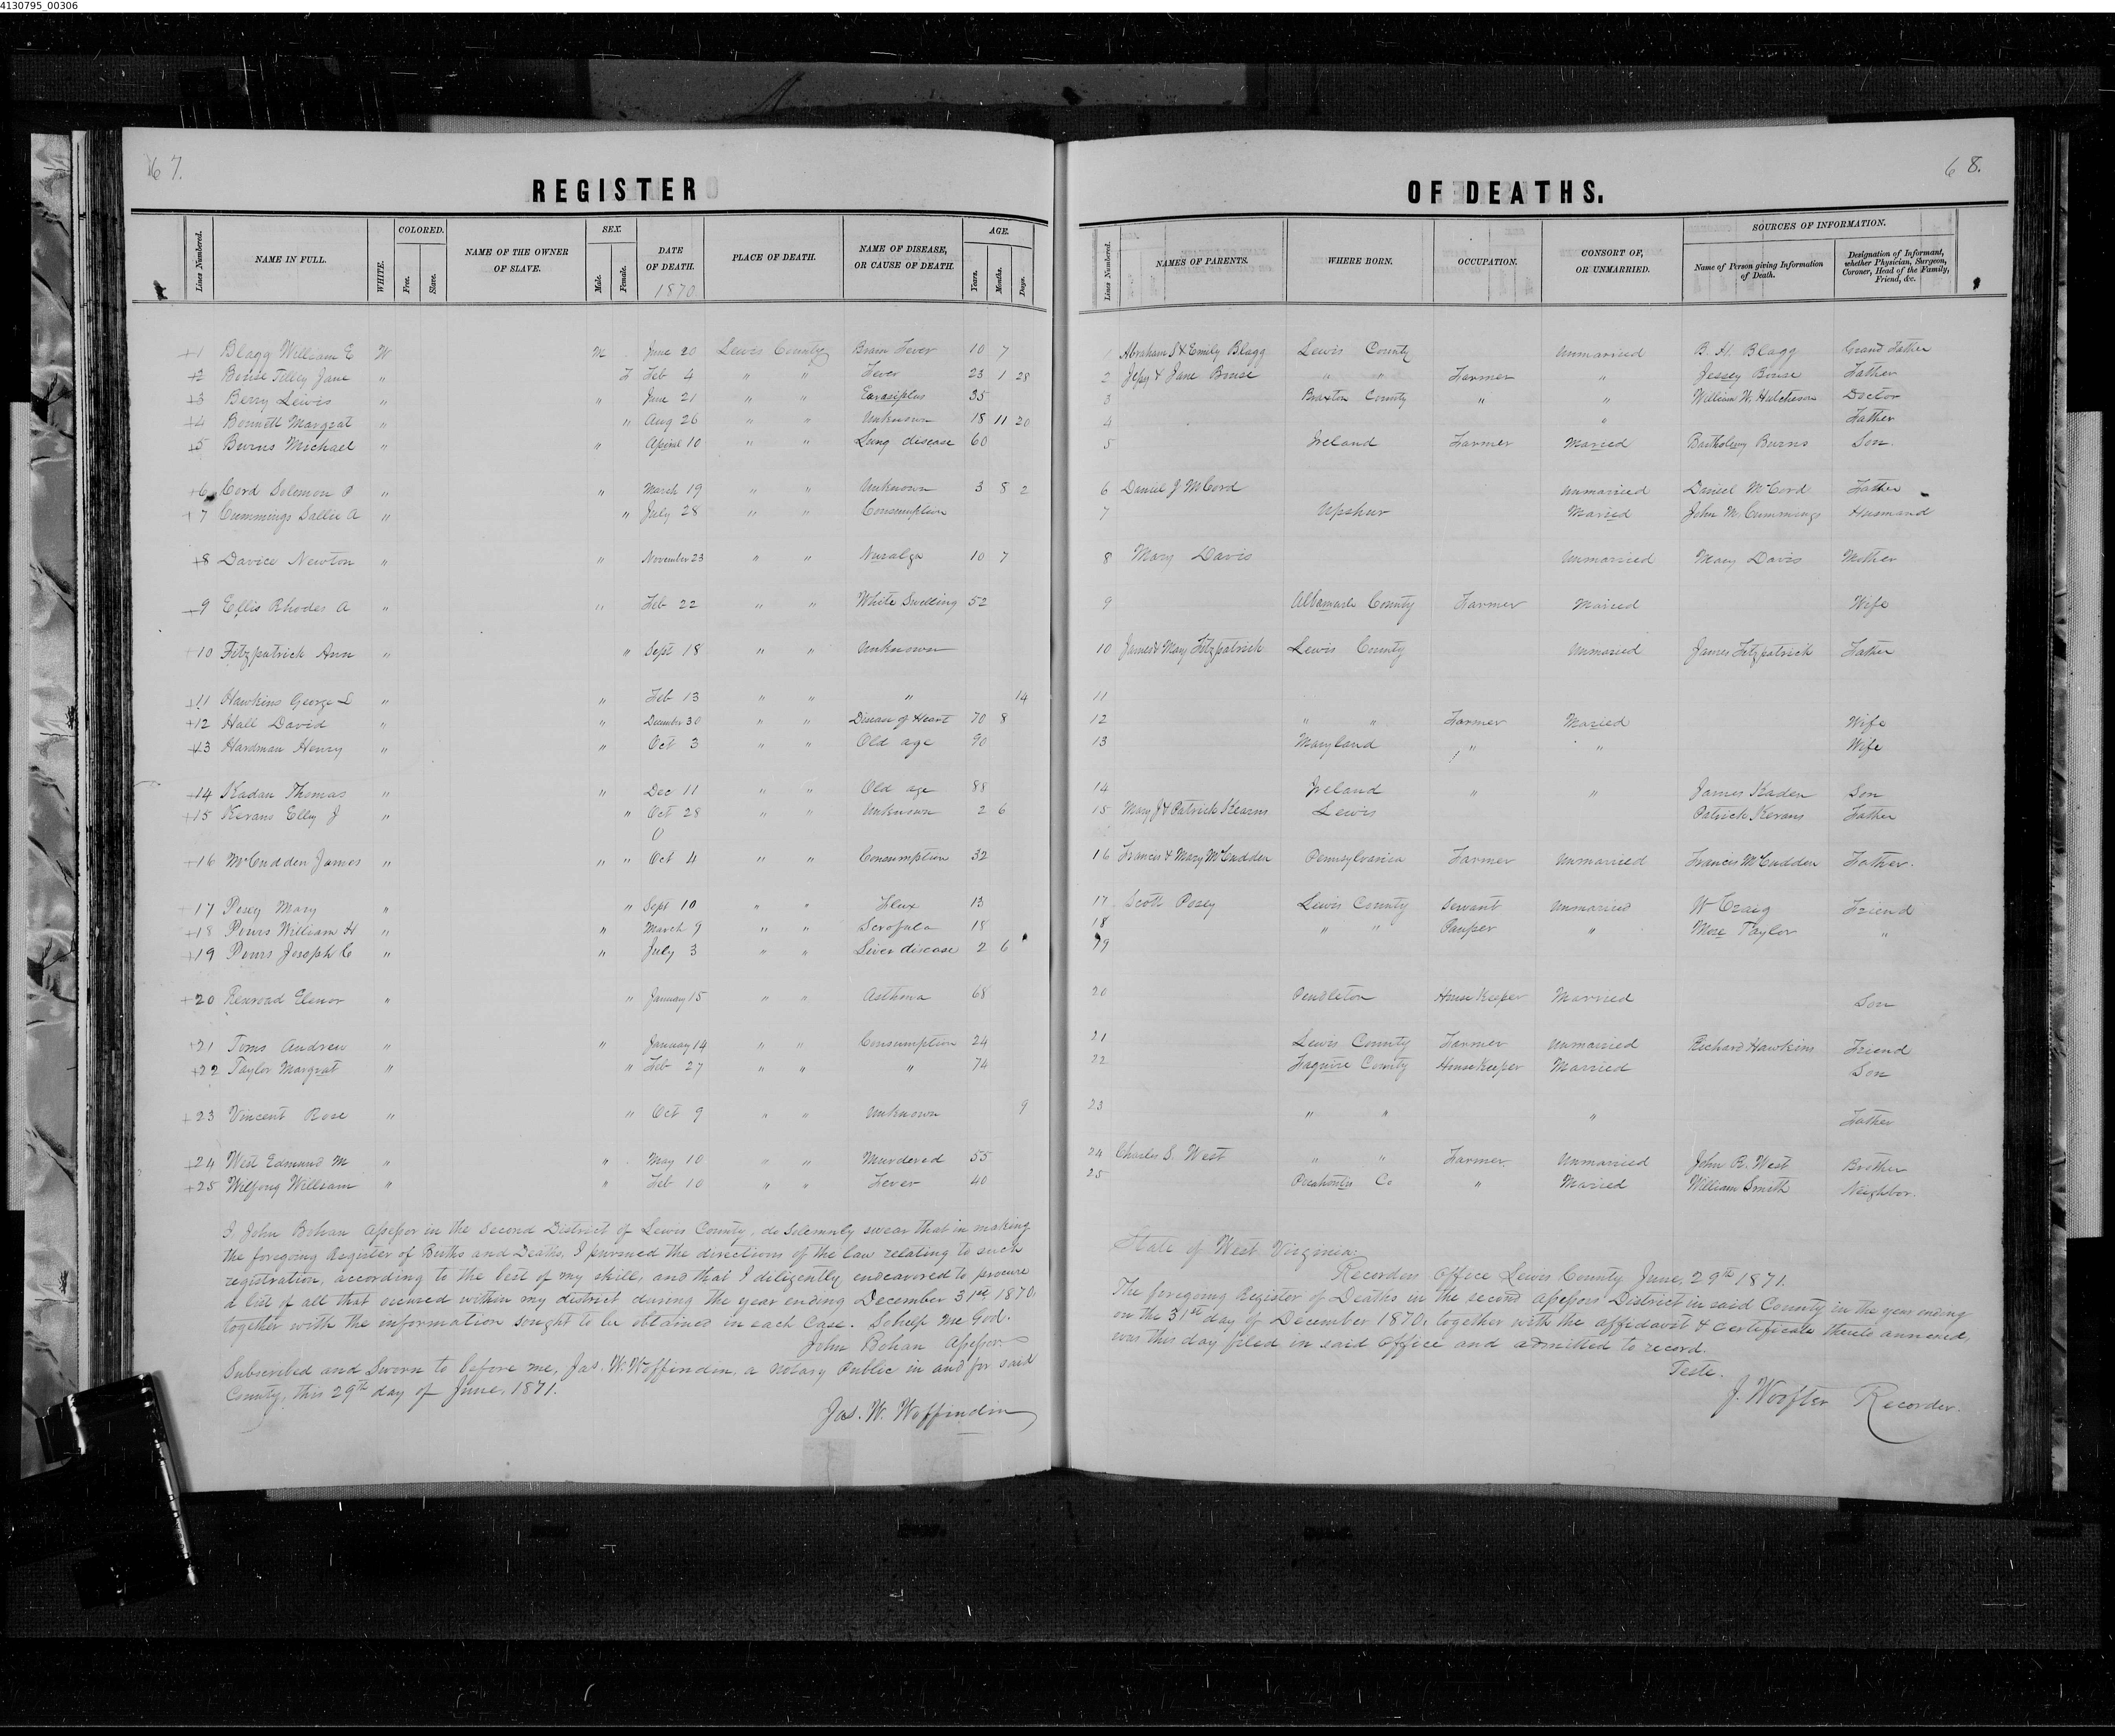 4130795_00306
67.
REGISTER
Lines Numbered. NAME IN FULL. WHITE. COLORED. Free. Slave. NAME OF THE OWNER OF SLAVE. SEX. Male. Female. DATE OF DEATH. 1870 PLACE OF DEATH. NAME OF DISEASE, OR CAUSE OF DEATH. AGE. Years. Months. Days.
+1 Blagg William E W M June 20 Lewis County Brain Fever 10 7
+2 Bouse Tilley Jane " F Feb 4 " " Fever 23 1 28
+3 Berry Lewis " " June 21 " " Earasiplus 35
+4 Bennett Margrat " " Aug 26 " " Unknown 18 11 20
+5 Burns Michael " " Apiral 10 " " Lung disease 60
+6 Cord Solomon P " " March 19 " " Unknown 3 8 2
+7 Cummings Sallie A " " July 28 " " Consumption
+8 Davice Newton " " November 23 " " Nuralga 10 7
+9 Ellis Rhodes A " " Feb 22 " " White Swelling 52
+10 Fitzpatrick Ann " " Sept 18 " " Unknown
+11 Hawkins George L " " Feb 13 " " " 14
+12 Hall David " " December 30 " " Disease of Heart 70 8
+13 Hardman Henry " " Oct 3 " " Old age 90
+14 Kadan Thomas " " Dec 11 " " Old age 88
+15 Kerans Elley J " " Oct 28 " " Unknown 2 6
+16 McCudden James " " " Oct 4 " " Consumption 32
+17 Posey Mary " " Sept 10 " " Flux 13
+18 Peurs William H " " March 9 " " Scrofula 18
+19 Peurs Joseph C " " July 3 " " Liver disease 2 6
+20 Rexroad Elenor " " January 15 " " Asthma 68
+21 Toms Andrew " " January 14 " " Consumption 24
+22 Taylor Margrat " " Feb 27 " " " 74
+23 Vincent Rose " " Oct 9 " " Unknown 9
+24 West Edmund M " " May 10 " " Murdered 55
+25 Wilfong William " " Feb 10 " " Fever 40
I, John Bohan Assessor in the Second District of Lewis County, do Solemnly swear that in making
the foregoing Register of Births and Deaths, I pursued the directions of the law relating to such
registration, according to the best of my skill, and that I diligently endeavored to procure
a list of all that occured within my district during the year ending December 31st, 1870,
together with the information sought to be obtained in each Case. So help me God.
John Bohan Assessor
Subscribed and Sworn to before me, Jas. W. Woffindin, a Notary Public in and for said
County, this 29th day of June, 1871.
Jas. W. Woffindin
68.
OF DEATHS.
Lines Numbered. NAMES OF PARENTS. WHERE BORN. OCCUPATION. CONSORT OF, OR UNMARRIED. SOURCES OF INFORMATION. Name of Person giving Information of Death. Designation of Informant, whether Physician, Surgeon, Coroner, Head of the Family, Friend, &c.
1 Abraham S & Emily Blagg Lewis County Unmarried B. H. Blagg Grand Father
2 Jessy & Jane Bouse " " Farmer " Jessey Bouse Father
3 Braxton County " " William W. Hutcheson Doctor
4 " Father
5 Ireland Farmer Maried Bartholomy Burns Son.
6 Daniel J McCord Unmaried Daniel McCord Father
7 Upshur Maried John M. Cummings Husmand
8 Mary Davis Unmarried Mary Davis Mother
9 Albamarle County Farmer Maried Wife
10 James & Mary Fitzpatrick Lewis County Unmaried James Fitzpatrick Father
11
12 " " Farmer Maried Wife
13 Maryland " " Wife
14 Ireland " " James Kaden Son
15 Mary J & Patrick Kearns Lewis Patrick Kerans Father
16 Francis & Mary McCudden Pennsylvania Farmer Unmarried Francis McCudden Father.
17 Scott Posey Lewis County Servant Unmaried W Craig Friend
18 " " Pauper " Mose Taylor "
19
20 Pendleton House Keeper Married Son
21 Lewis County Farmer Unmarried Richard Hawkins Friend
22 Faquire County House Keeper Married Son
23 " " " Father
24 Charles S. West " " Farmer Unmarried John R. West Brother
25 Pocahontas Co " Maried William Smith Neighbor.
State of West Virginia:
Recorders Office Lewis County June, 29th 1871.
The foregoing Register of Deaths in the second assessors District in said County in the year ending
on the 31st day of December 1870, together with the affidavit & certificate thereto annexed,
was this day filed in said office and admitted to record.
Teste.
J. Woofter Recorder.